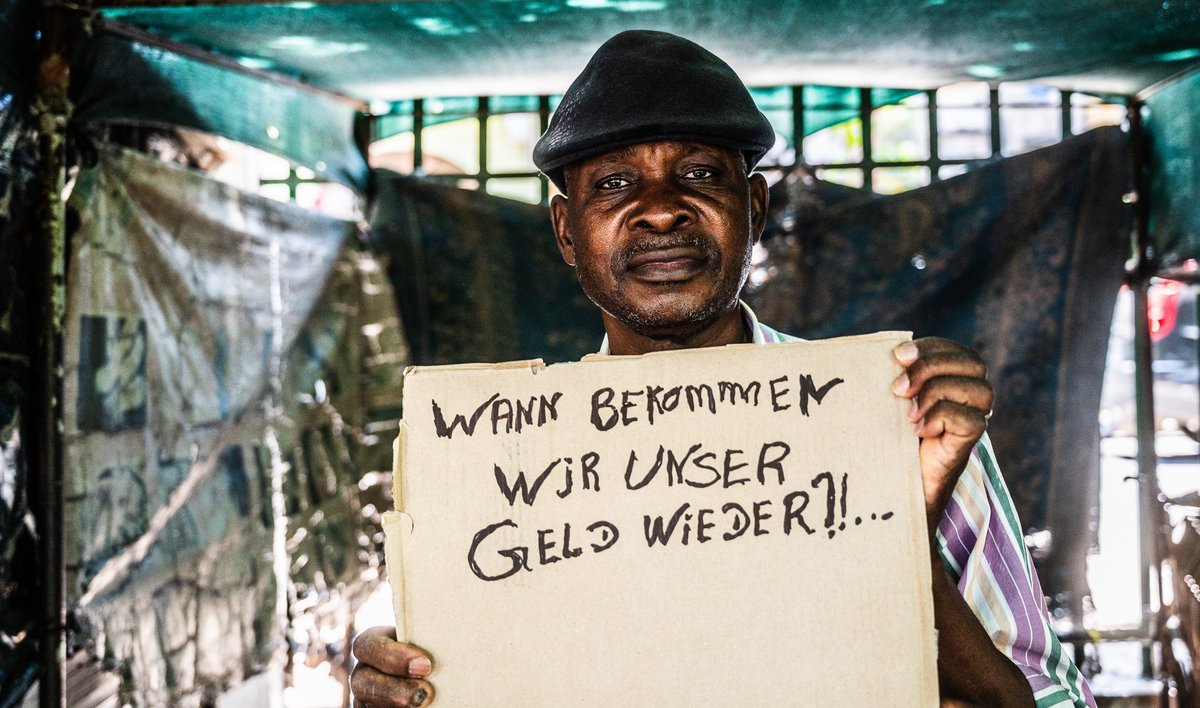 WANN BEKOMMEN
WIR UNSER
GELD WIEDER?!...